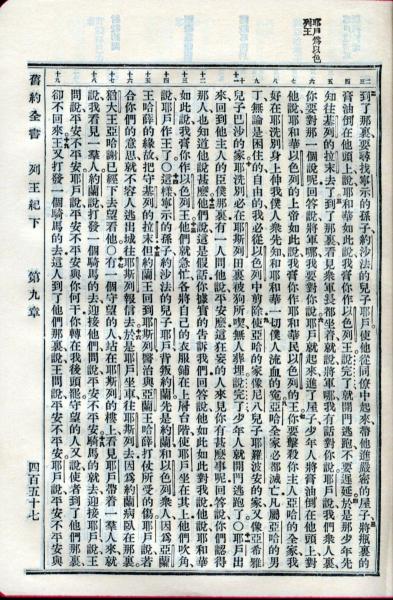 耶戶爲以色
列王
二三 四 五 六 七 八 九 十 十一 十二 十三 十四 十五 十六 十七 十八 十九
到了那裏要尋找寧示的孫子約沙法的兒子耶戶使他從同僚中起來帶他進嚴密的屋子將瓶裏的
膏油倒在他頭上說耶和華如此說我膏你作以色列王說完了就開門逃跑不要遲延於是那少年先
知往基列的拉末去了到了那裏看見衆軍長都坐着就說將軍哪我有話對你說耶戶說我們衆人裏
你要對那一個說呢回答說將軍哪我要對你說耶戶就起來進了屋子少年人將膏油倒在他頭上對
他說耶和華以色列的上帝如此說我膏你作耶和華民以色列的王你要擊殺你主人亞哈的全家我
好在耶洗別身上伸我僕人衆先知和耶和華一切僕人流血的冤亞哈全家必都滅亡凡屬亞哈的男
丁無論是困住的自由的我必從以色列中剪除使亞哈的家像尼八兒子耶羅波安的家又像亞希雅
兒子巴沙的家耶洗別必在耶斯列田裏被狗所喫無人葬埋說完了少年人就開門逃跑了○耶戶出
來回到他主人的臣僕那裏有一人問他說平安麼這狂妄的人來見你有甚麼事呢回答說你們認得
那人也知道他說甚麼他們說這是假話你據實的告訴我們回答說他如此如此對我說他說耶和華
如此說我膏你作以色列王他們就急忙各將自己的衣服鋪在上層台階使耶戶坐在其上他們吹角
說耶戶作王了○這樣寧示的孫子約沙法的兒子耶戶背叛約蘭先是約蘭和以色列衆人因爲亞蘭
王哈薛的緣故把守基列的拉末但約蘭王回到耶斯列醫治與亞蘭王哈薛打仗所受的傷耶戶說若
合你們的意思就不容人逃出城往耶斯列報信去於是耶戶坐車往耶斯列去因爲約蘭病臥在那裏
猶大王亞哈謝已經下去望看他○有一個守望的人站在耶斯列的樓上看見耶戶帶着一羣人來就
說我看見一羣人約蘭說打發一個騎馬的去迎接他們問說平安不平安騎馬的就去迎接耶戶說王
問說平安不平安耶戶說平安不平安與你何干你轉在我後頭罷守望的人又說使者到了他們那裏
卻不回來王又打發一個騎馬的去這人到了他們那裏說王問說平安不平安耶戶說平安不平安與
舊約全書 列王紀下 第九章 四百五十七